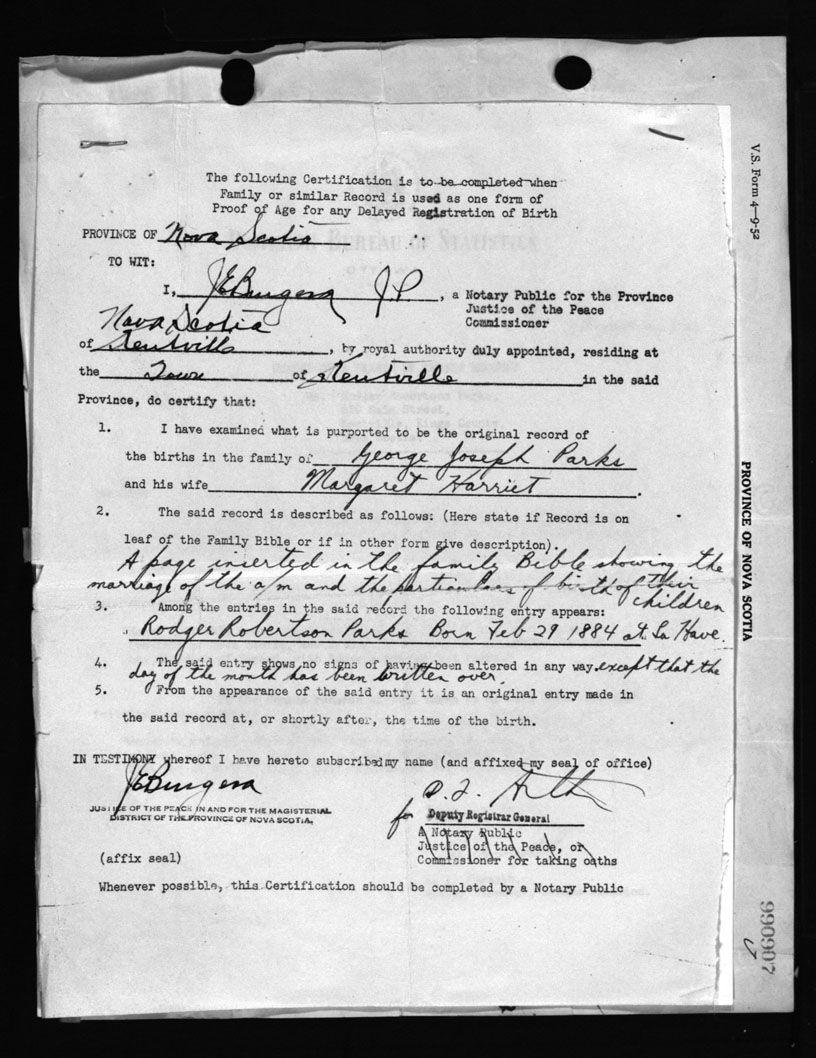 The following Certification is to be completed when
Family or similar Record is used as one form of
Proof of Age for any Delayed Registration of Birth
PROVINCE OF Nova Scotia
BUREAU OF STATISTICS
TO WIT:
I, J.P. , a Notary Public for the Province
Justice of the Peace
Commissioner
Nova Scotia
of Kentville , by royal authority duly appointed, residing at
the Town of Kentville in the said
Province, do certify that:
1. I have examined what is purported to be the original record of
the births in the family of George Joseph Parks
and his wife Margaret Harriet .
2. The said record is described as follows: (Here state if Record is on
leaf of the Family Bible or if in other form give description).
A page inserted in the family Bible showing the
marriage of the a/m and the particulars of birth of their
children
3. Among the entries in the said record the following entry appears:
Rodger Robertson Parks Born Feb 29 1884 at La Have.
4. The said entry shows no signs of having been altered in any way. except that the
day of the month has been written over.
5. From the appearance of the said entry it is an original entry made in
the said record at, or shortly after, the time of the birth.
IN TESTIMONY whereof I have hereto subscribed my name (and affixed my seal of office)
JUSTICE OF THE PEACE IN AND FOR THE MAGISTERIAL
DISTRICT OF THE PROVINCE OF NOVA SCOTIA.
for Deputy Registrar General
A Notary Public
Justice of the Peace, or
Commissioner for taking oaths
(affix seal)
Whenever possible, this Certification should be completed by a Notary Public
V.S. Form 4—9-52
PROVINCE OF NOVA SCOTIA